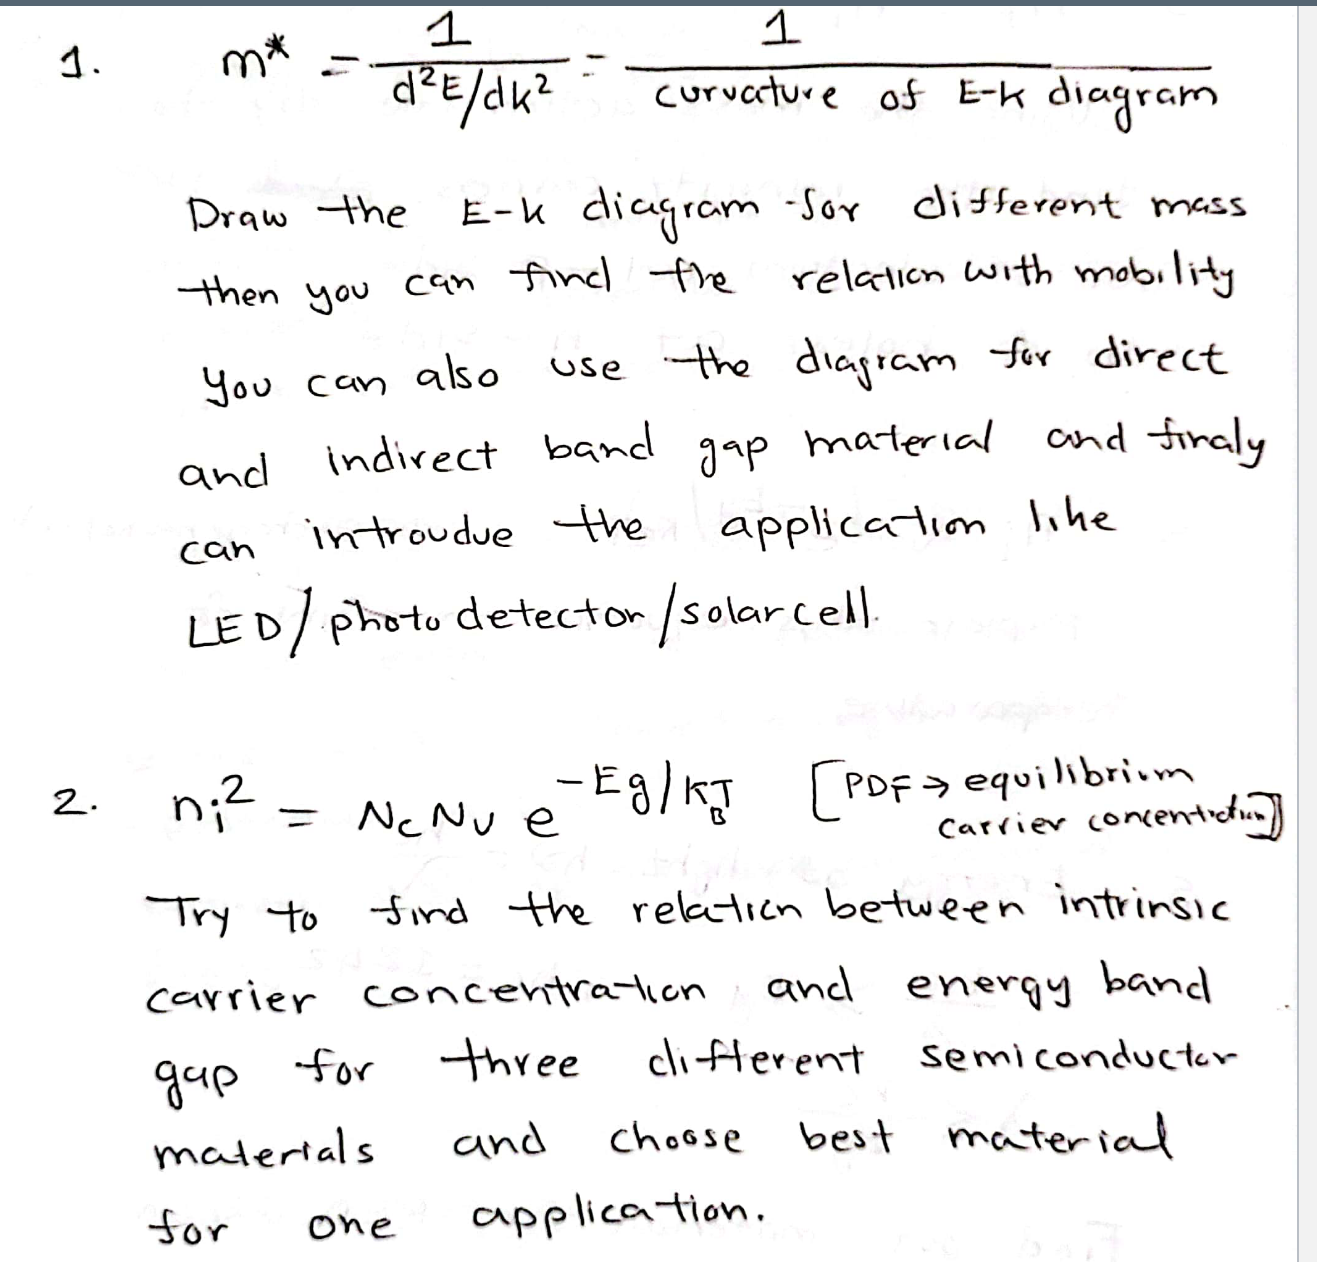 1. m* = 1 / d²E/dk² = 1 / curvature of E-k diagram
Draw the E-k diagram for different mass
then you can find the relation with mobility
you can also use the diagram for direct
and indirect band gap material and finaly
can introudue the application like
LED/photodetector/solarcell.
2. nᵢ² = Nc Nv e^-Eg/KBT [PDF → equilibrium
carrier concentration]
Try to find the relation between intrinsic
carrier concentration and energy band
gap for three different semiconductor
materials and choose best material
for one application.